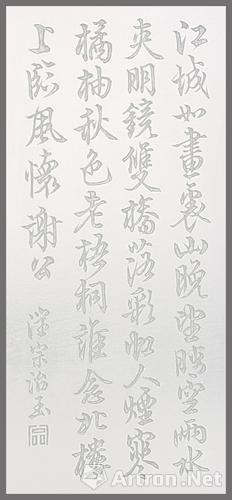 江城如畫裏山晚望晴空兩水
夾明鏡雙橋落彩虹人煙寒
橘柚秋色老梧桐誰念北樓
上臨風懷謝公
宗治玉
Artron.Net